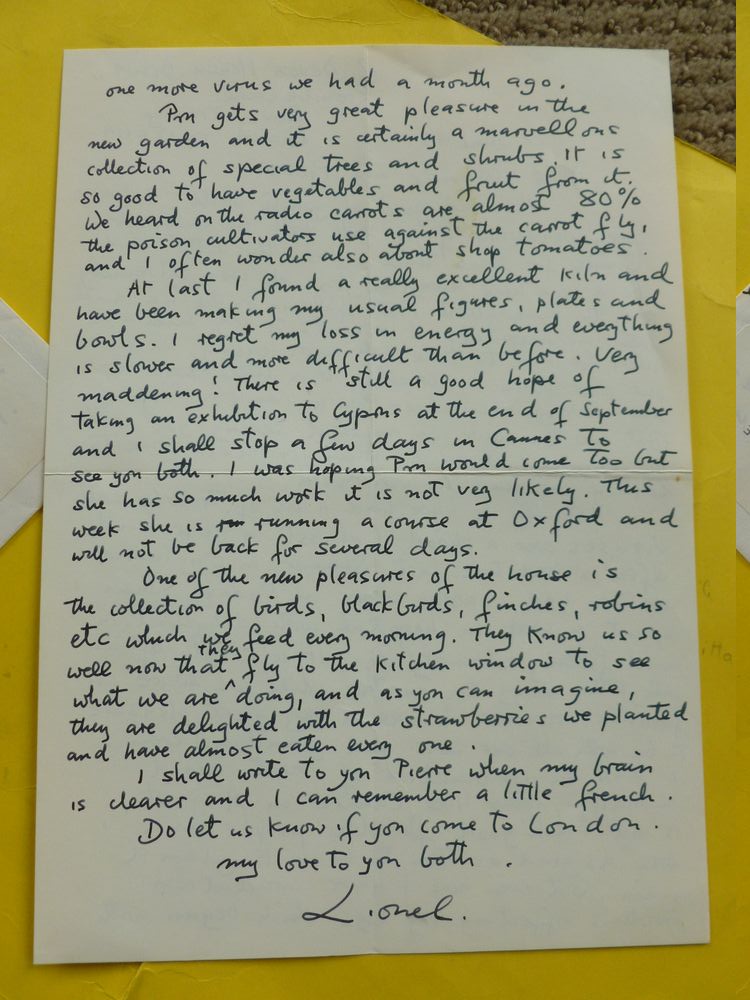 one more virus we had a month ago.
Prn gets very great pleasure in the
new garden and it is certainly a marvellous
collection of special trees and shrubs. It is
so good to have vegetables and fruit from it.
We heard on the radio carrots are almost 80%
the poison cultivators use against the carrot fly,
and I often wonder also about shop tomatoes.
At last I found a really excellent kiln and
have been making my usual figures, plates and
bowls. I regret my loss in energy and everything
is slower and more difficult than before. Very
maddening! There is still a good hope of
taking an exhibition to Cyprus at the end of September
and I shall stop a few days in Cannes to
see you both. I was hoping Prn would come too but
she has so much work it is not very likely. This
week she is running a course at Oxford and
will not be back for several days.
One of the new pleasures of the house is
the collection of birds, blackbirds, finches, robins
etc which we feed every morning. They know us so
well now that they fly to the kitchen window to see
what we are doing, and as you can imagine,
they are delighted with the strawberries we planted
and have almost eaten every one.
I shall write to you Pierre when my brain
is clearer and I can remember a little french.
Do let us know if you come to London.
my love to you both.
Lionel.